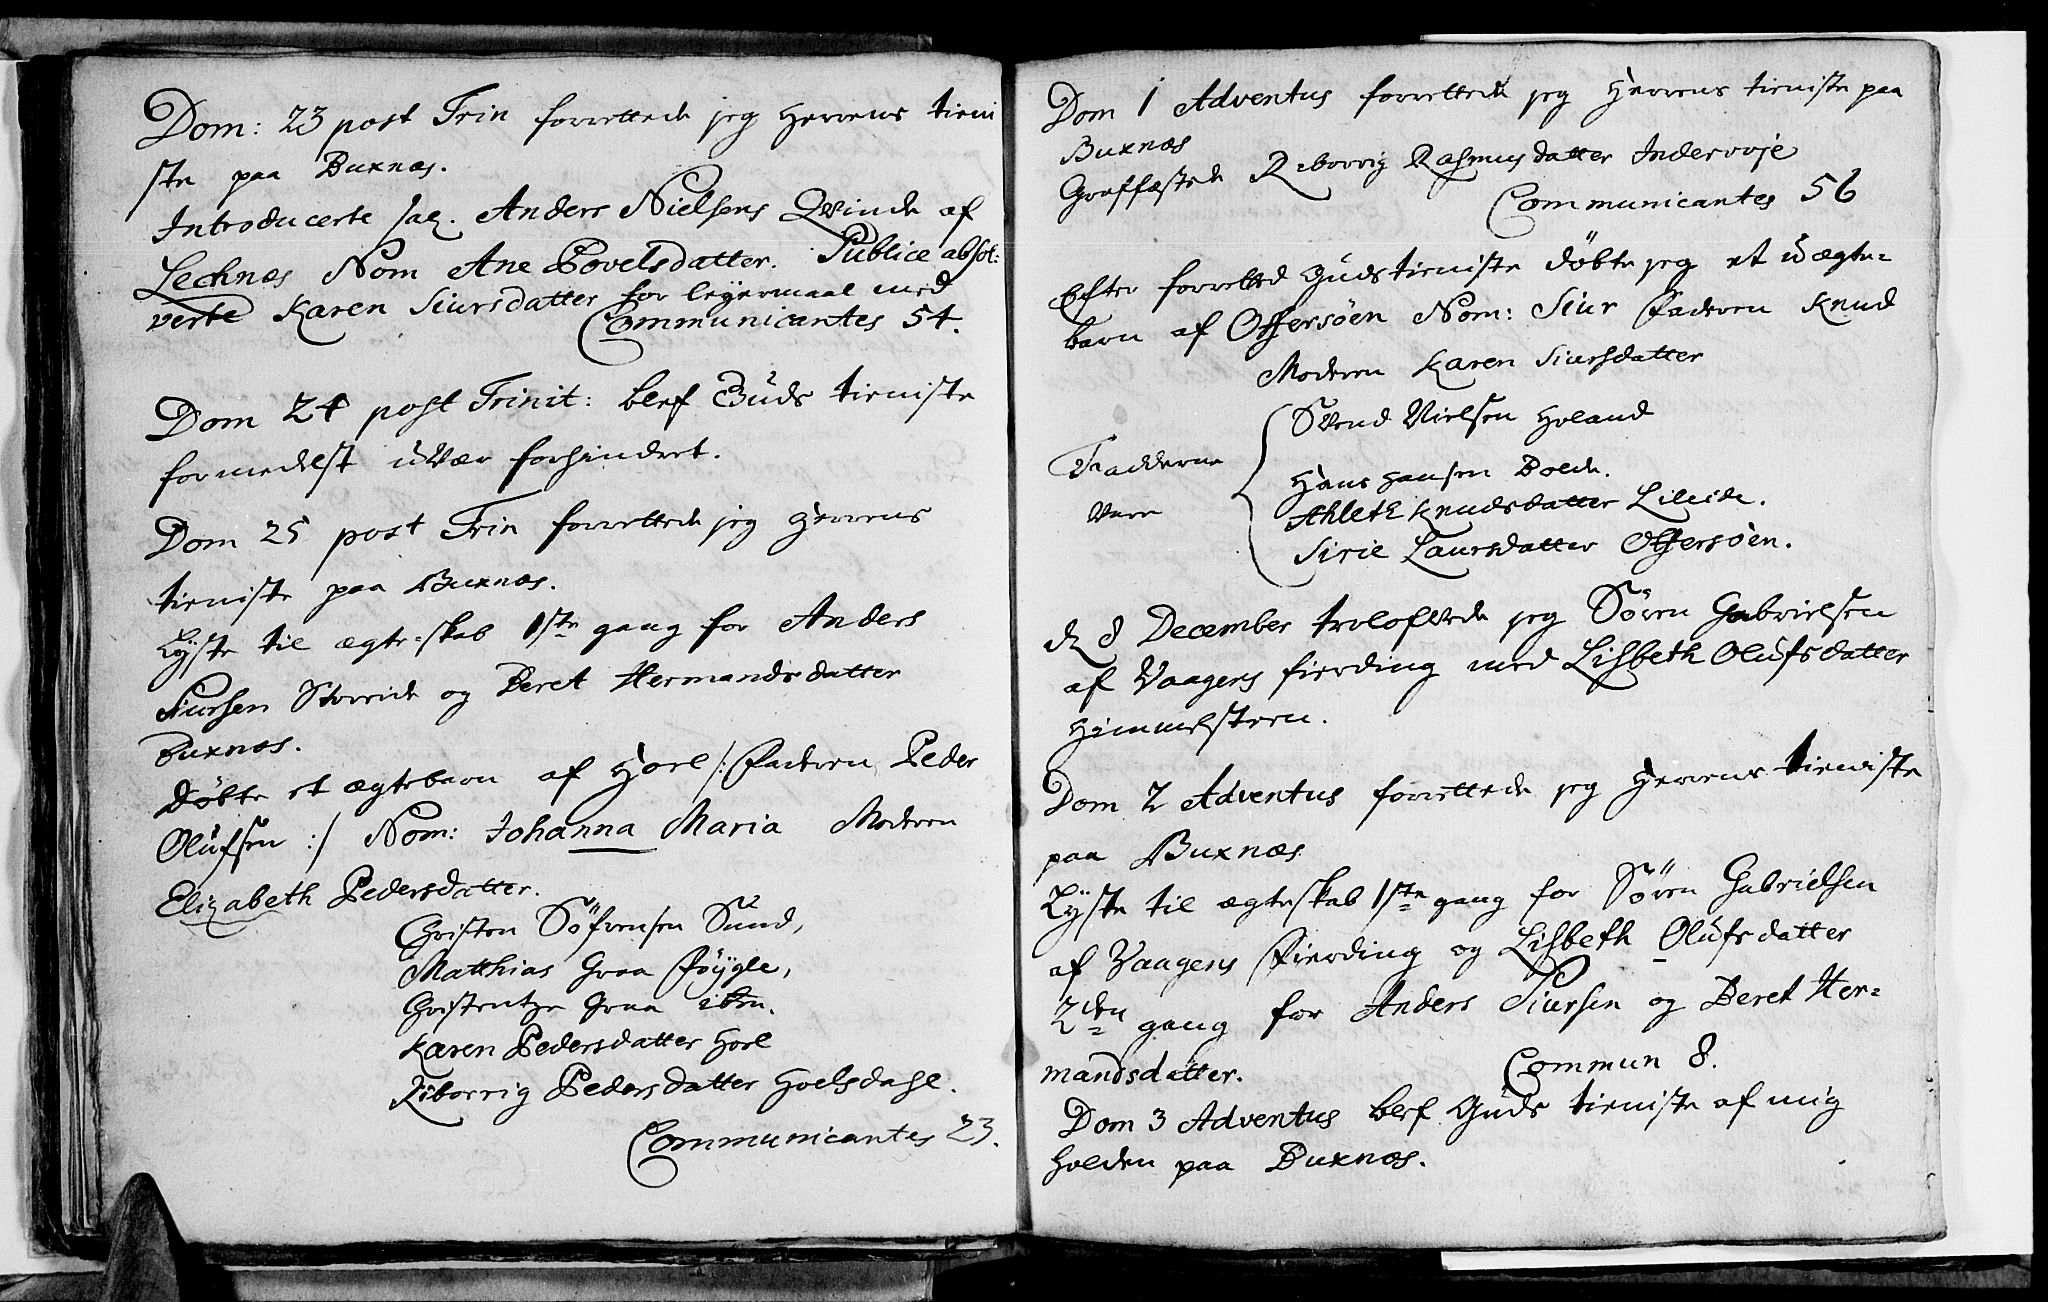 Dom: 23 post Trin forrettede jeg Herrens tieni
ste paa Buxnæs.
Introducerte sal. Anders Nielsens Qvinde af
Lechnæs Nom Ane Povelsdatter. Publice absol:
verte Karen Siursdatter for leyermaal med
Communicantes 54.
Dom 24 post Trinit: blef Guds tieniste
formedelst uvær forhindret.
Dom 25 post Trin forrettede jeg Herrens
tieniste paa Buxnæs.
Lyste til ægte-skab 1ste gang for Anders
Siursen Storeide og Beret Hermandsdatter
Buxnæs.
Døbte et ægtebarn af Hoel /: Faderen Peder
Olufsen :/ Nom: Johanna Maria Moderen
Elizabeth Pedersdatter.
Christen Söfrensen Sund,
Matthias Graa Föygle,
Christentze Graa ibm.
Karen Pedersdatter Hoel
Riborrig Pedersdatter Hoelsdahl.
Communicantes 23.
Dom 1 Adventus forrettede jeg Herrens tieniste paa
Buxnæs
Graffæstede Reborrig Rasmusdatter Indervoje
Communicantes 56
Efter forretted Gudstieniste døbte jeg et uægte-
barn af Offersøen Nom: Siur Faderen Knud
Moderen Karen Siursdatter
Svend Nielsen Holand
Fadderne
Hans Hansen Bolde.
Ahleth Knudsdatter Lileide.
Vare
Sirie Laursdatter Offersøen.
d 8 December trolofvede jeg Sören Gabrielsen
af Vaagens fierding med Lisbeth Olufsdatter
Himmelsteen.
Dom 2 Adventus forrettede jeg Herrens tieniste
paa Buxnæs
Lyste til ægteskab 1ste gang for Sören Gabrielsen
af Vaagens Fierding og Lisbeth Olufsdatter
2den gang for Anders Siursen og Beret Her-
mandsdatter. Commun 8.
Dom 3 Adventus blef Guds tieniste af mig
holden paa Buxnæs.